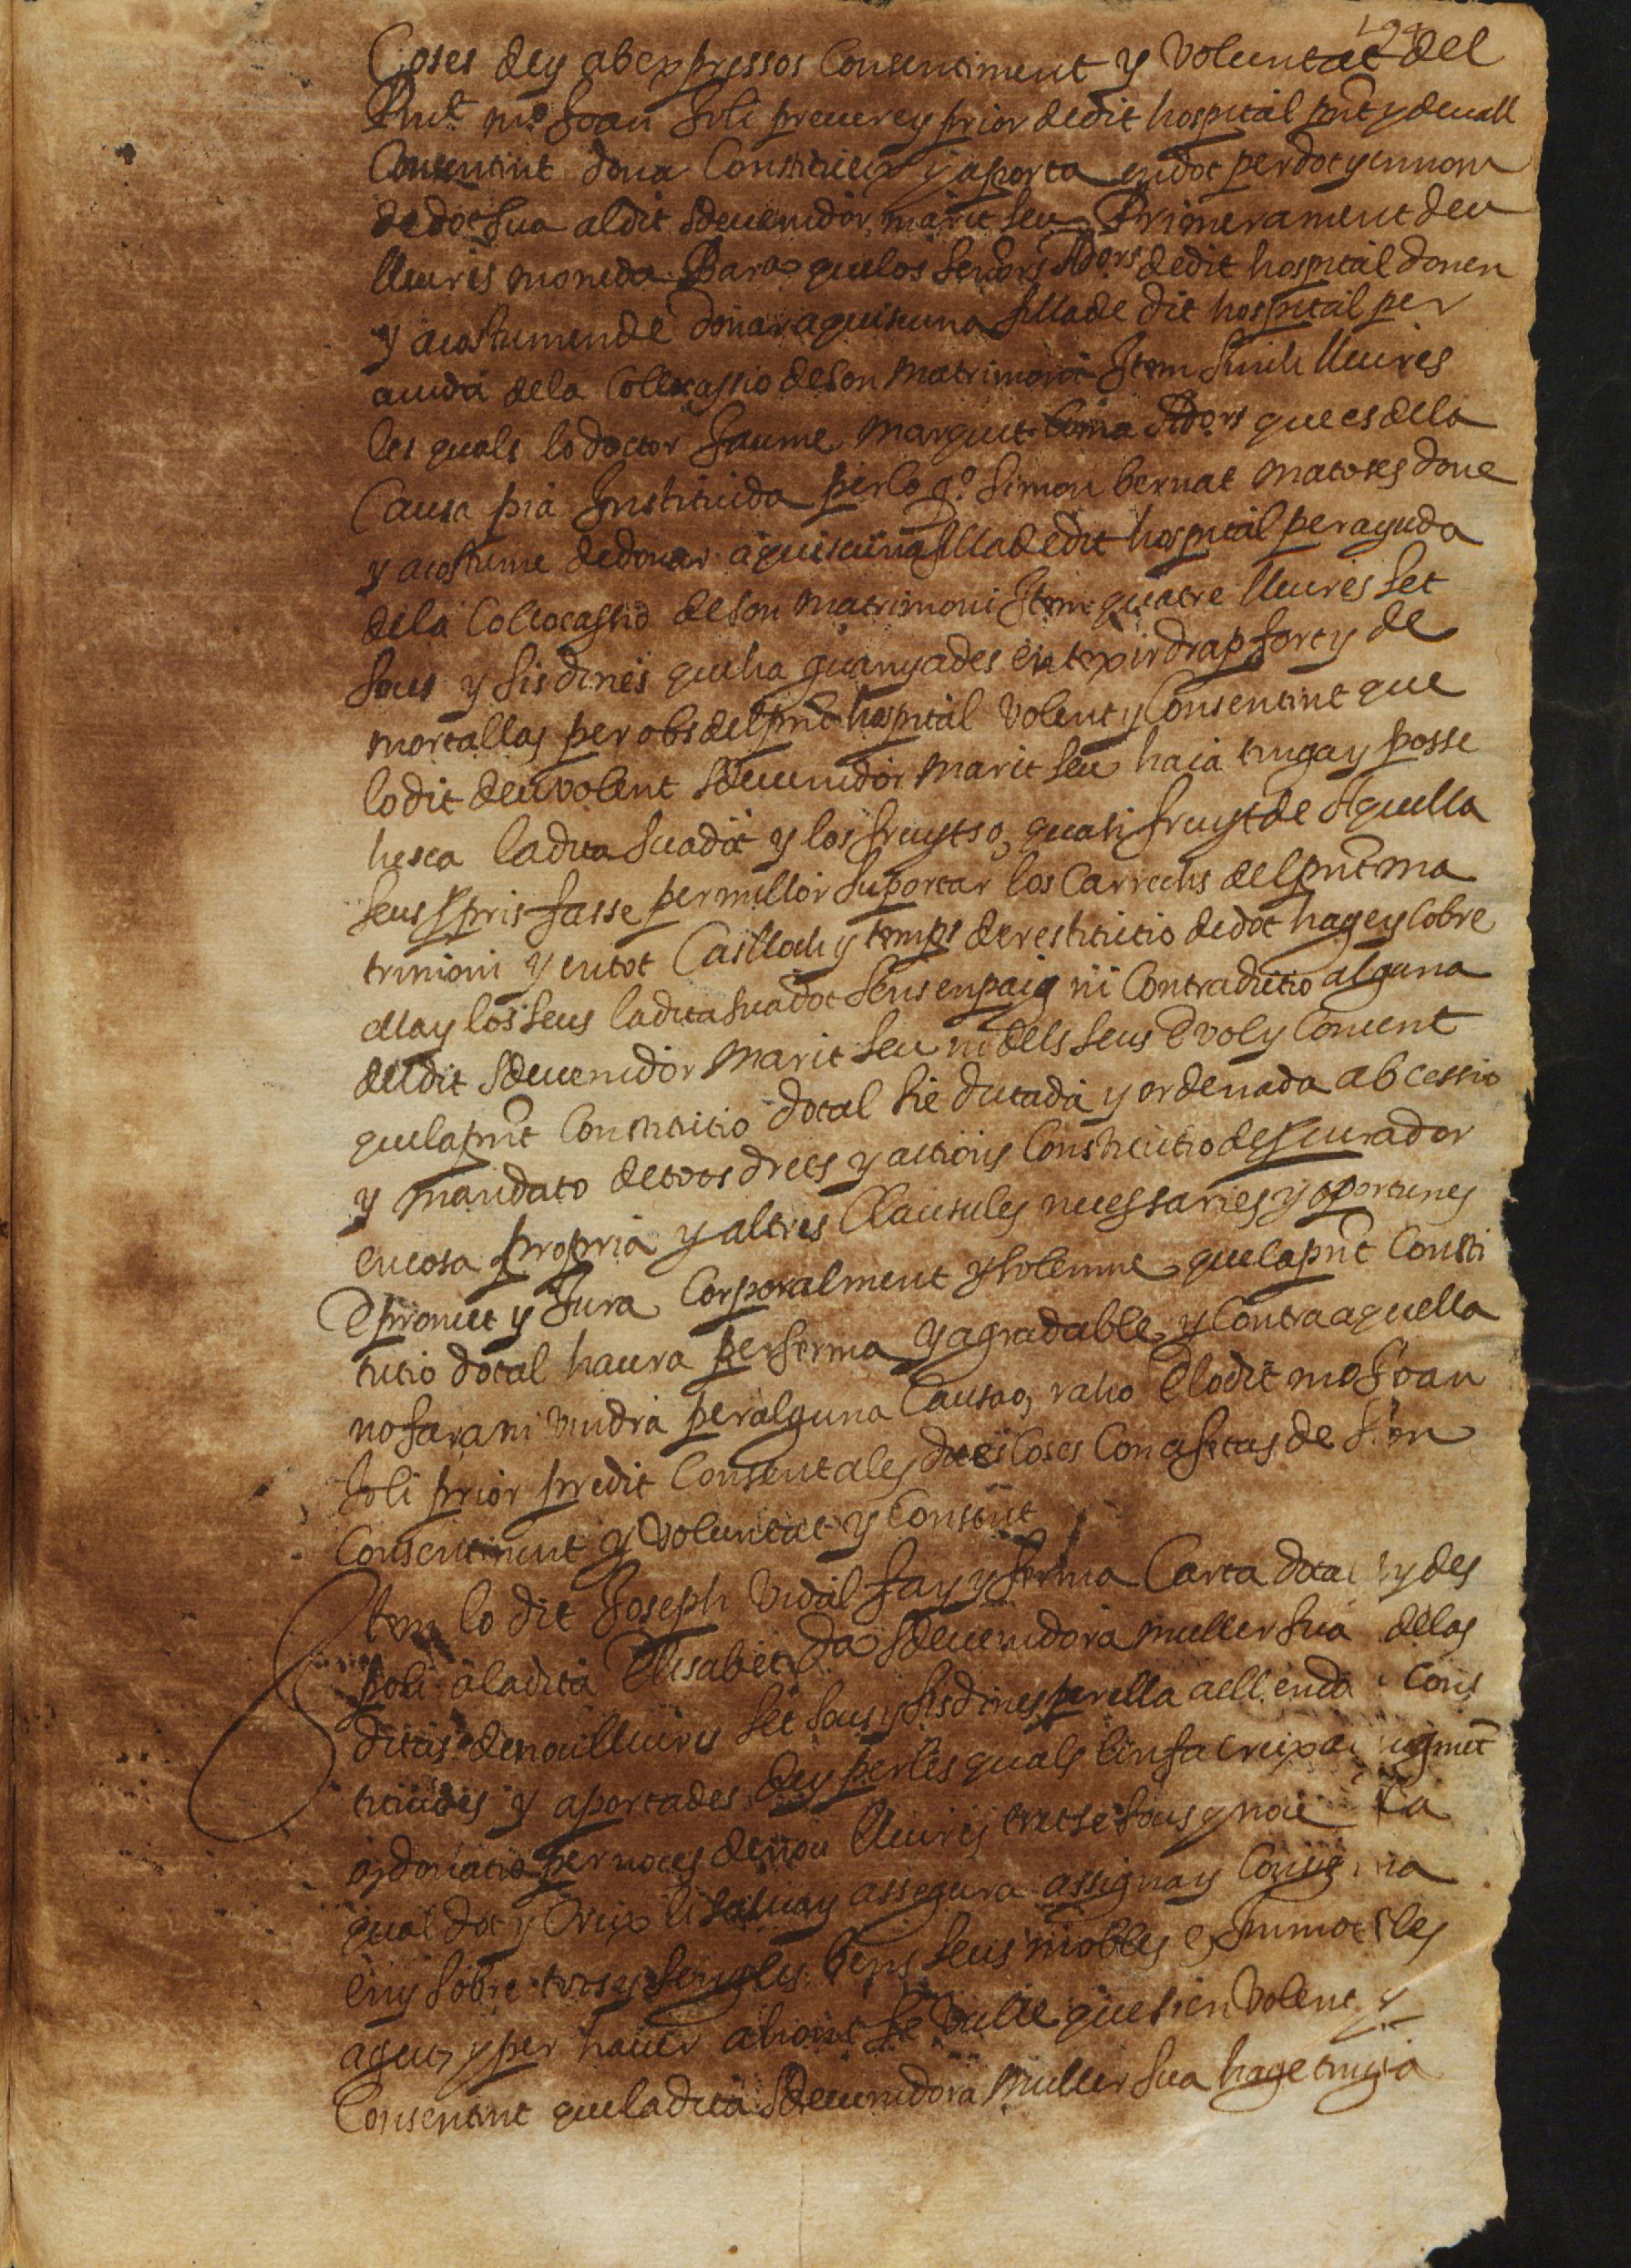 194
Coses dey ab expressos Consentiment y Voluntat del
Rnt. mo. Joan Soli preuere y prior de dit hospital pnt y deuall
Consentint dona Constitueix y aporta en dot per dot y en nom
de dot sua al dit sdeuenidor marit seu Primerament deu
lliures moneda Barã que los senors Ados de dit hospital donen
y acostumen de donar a quiscuna filla de dit hospital per
aiuda de la Collocassio de son Matrimoni Item Sinch lliures
les quals lo doctor Jaume Marquet Coma Ador que es de la
Causa pia Instituida per lo qo. Simon bernat Matoses done
y acostume de donar a quiscuna filla de dit hospital per ayuda
de la Collocassio de son matrimoni Item quatre lliures set
sous y sis dines que ha guanyades en texir drap fort y de
mortallas per obs del pnt hospital Volent y Consentint que
lo dit Sdeuenidor marit seu haia tinga y posse
hesca la dita sua dot y los fruyts o, quasi fruyt de Aquella
seus propris fasse per millor suportar los Carrechs del pnt ma
trimoni y en tot Cas lloch y temps de restitutio de dot hage y Cobre
ella y los seus la dita sua dot sens enpaig ni Contradictio alguna
del dit Sdeuenidor Marit seu ni dels seus E vol y Conuent
que la pnt Constitutio dotal sie dictada y ordenada ab cessio
y mandato de tots drets y actions Constitutio de procurador
en cosa propria y altres Clausules necessaries y oportunes
E promet y Jura Corporalment y solemne que la pnt Consti
tutio dotal haura per ferma y agradable y Contra aquella
no fara ni vindra per alguna Causa o, raho E lo dit mo Joan
Soli prior predit Consent a les dites Coses Con a fetas de son
Consentiment y Voluntat y Consent
Item lo dit Joseph Vidal fa y ferma Carta dotal y des
poli a la dita Elisabet da Sdeuenidora muller sua de las
ditas denou lliures set sous y sis dines per ella a ell en dot Cons
tituides y aportades Dey per les quals li n fa creix augment
o, donatio per noces de nou lliures tretse sous y nou La
qual dot y Creix li salua y assegura assigna y Consigna
en y sobre tots y sengles bens seus mobles e, Immobles
aguts y per hauer ahont se vulle que sien Volent y
Consentint que la dita Sdeuenidora Muller sua hage tinga